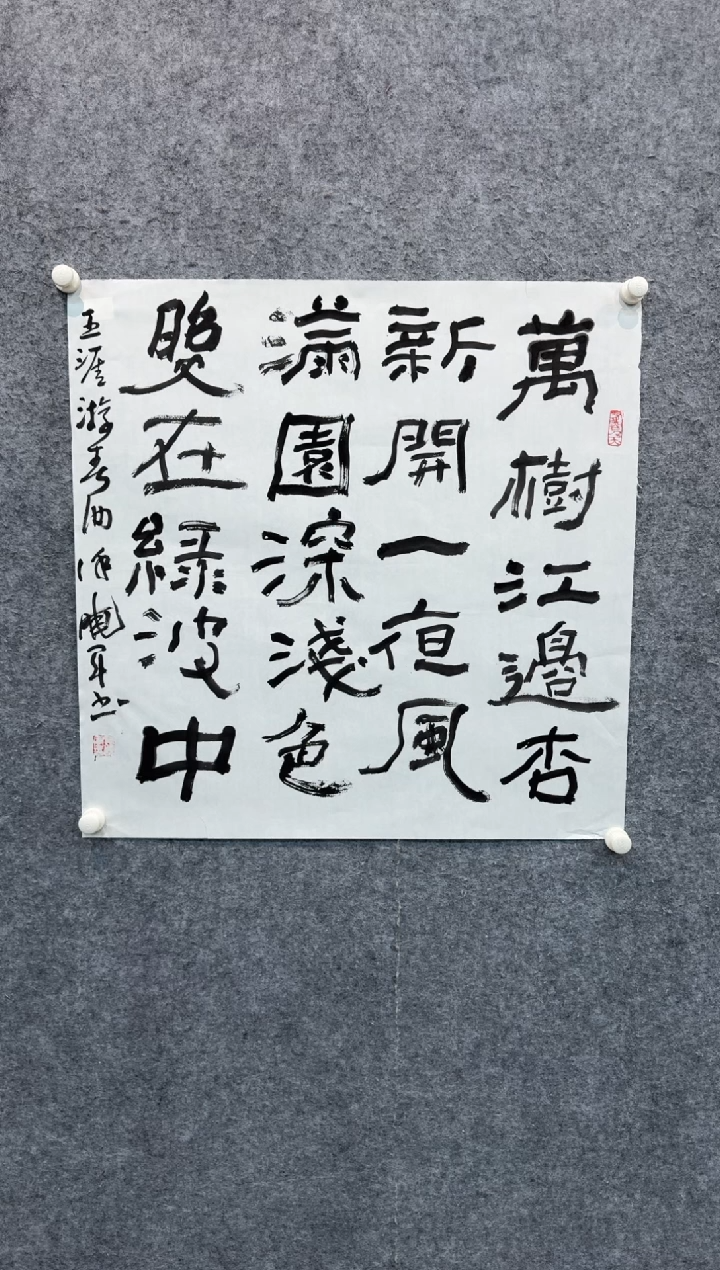 萬樹江邊杏
新開一夜風
滿園深淺色
照在綠波中
王涯游春曲 軍书